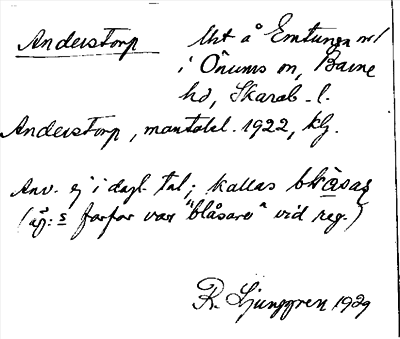 Anderstorp lht å Emtunga nr 1
i Önums sn, Barne
hd, Skarab. l.
Anderstorp, mantalsl. 1922, klg.
Anv. ej i dagl. tal; kallas blåsas
(äg:s farfar var "blåsare" vid reg.)
R. Ljunggren 1929